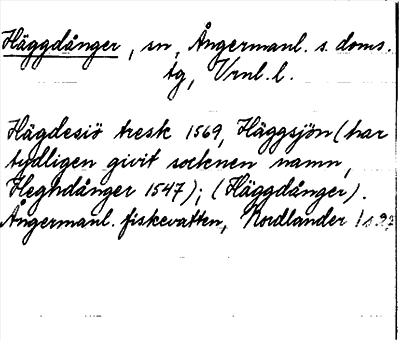 Häggdånger, sn, Ångermanl. s. doms.
tg, Vrnl. l.
Hägdesiö tresk 1569, Häggsjön (har
tydligen givit socknen namn,
Heghdånger 1547); (Häggdånger).
Ångermanl. fiskevatten, Nordlander 1 s.